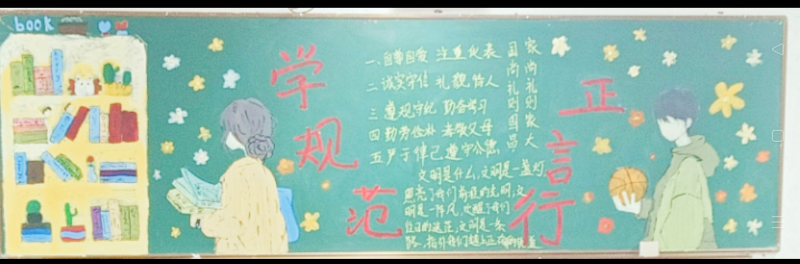 book
学规范
一、自尊自爱 注重仪表
二、诚实守信 礼貌待人
三 遵规守纪 勤奋学习
四 勤劳俭朴 孝敬父母
五 严于律己 遵守公德
国尚礼则国昌
家尚礼则家大
文明是什么,文明是一盏灯,
照亮了我们前进的光明,文
明是一阵风,吹醒了我们
往日的迷茫,文明是一条
路,指引我们踏上正
正言行